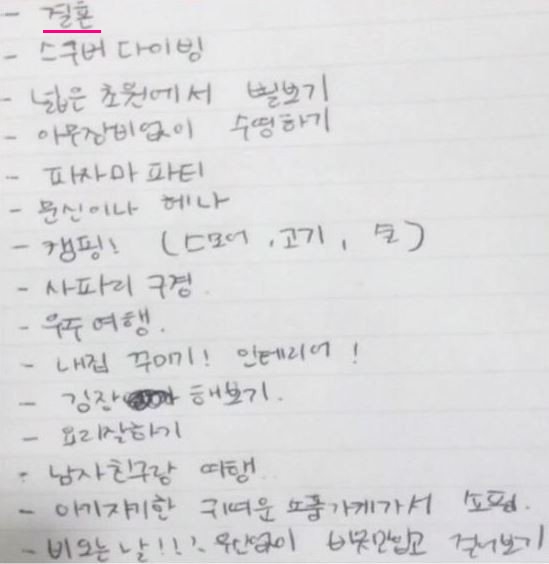 - 결혼
- 스쿠버 다이빙
- 넓은 초원에서 별보기
- 아무장비없이 수영하기
- 파자마 파티
- 문신이나 헤나
- 캠핑! (스모어, 고기, )
- 사파리 구경.
- 우주여행.
- 내집 꾸미기! 인테리어!
- 김장 해보기.
- 요리잘하기
- 남자친구랑 여행.
- 아기자기한 귀여운 소품가게가서 쇼핑.
- 비오는날!!! 우산없이 비옷만입고 걸어보기